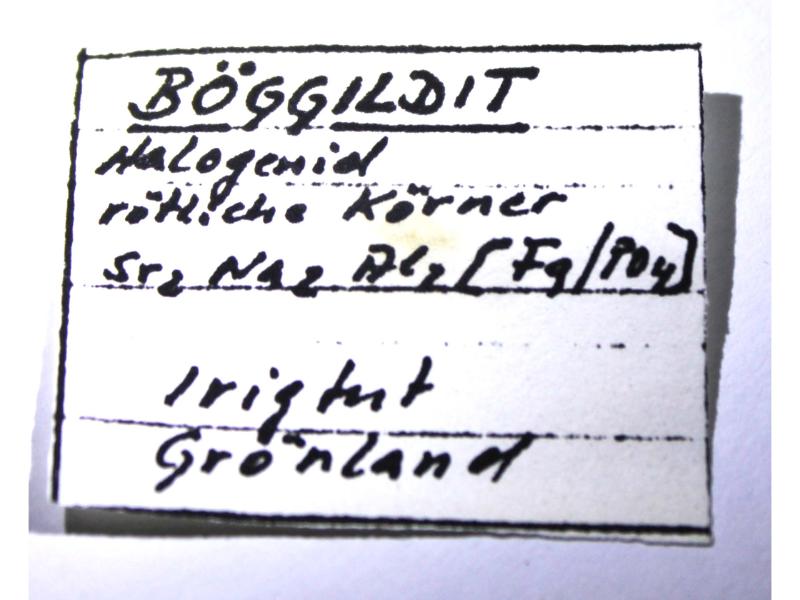 BÖGGILDIT
Halogenid
rötliche Körner
Sr₂ Na₂ Al₂ [F₉/PO₄]
Irigtut
Grönland